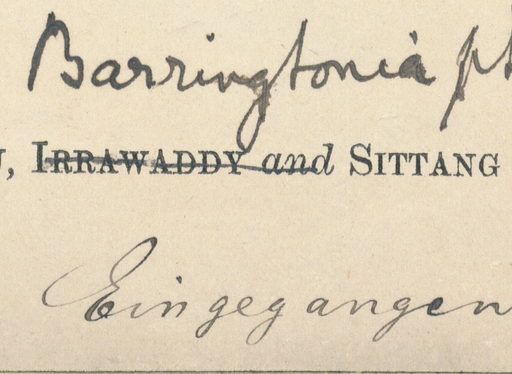 Barringtonia pt
, IRRAWADDY and SITTANG
Eingegangen